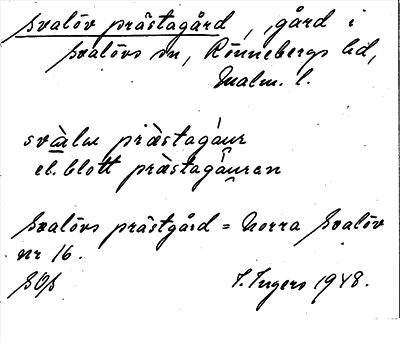 Svalöv prästagård, gård i
Svalövs sn, Rönnebergs hd,
Malm. l.
svàlm præ̀stagáur
el. blott præ̀stagáuren
Svalövs prästgård = Norra Svalöv
nr 16.
SOS I. Ingers 1948.